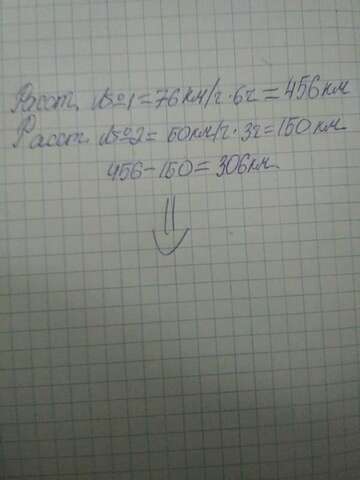 Расст. №1=76км/г·6г=456км
Расст. №2=50км/г·3г=150км
456-150=306км